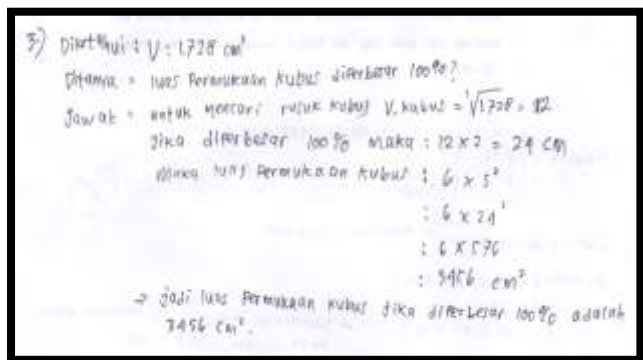 3.) Diketahui : V : 1.728 cm³
Ditanya = luas Permukaan kubus diperbesar 100%?
Jawab = untuk mencari rusuk kubus V. kubus = ³√1.728 = 12
Jika diperbesar 100% maka : 12 x 2 = 24 cm
Maka luas permukaan kubus : 6 x s²
: 6 x 24²
: 6 x 576
: 3456 cm²
→ Jadi luas Permukaan kubus jika diperbesar 100% adalah
3456 cm².